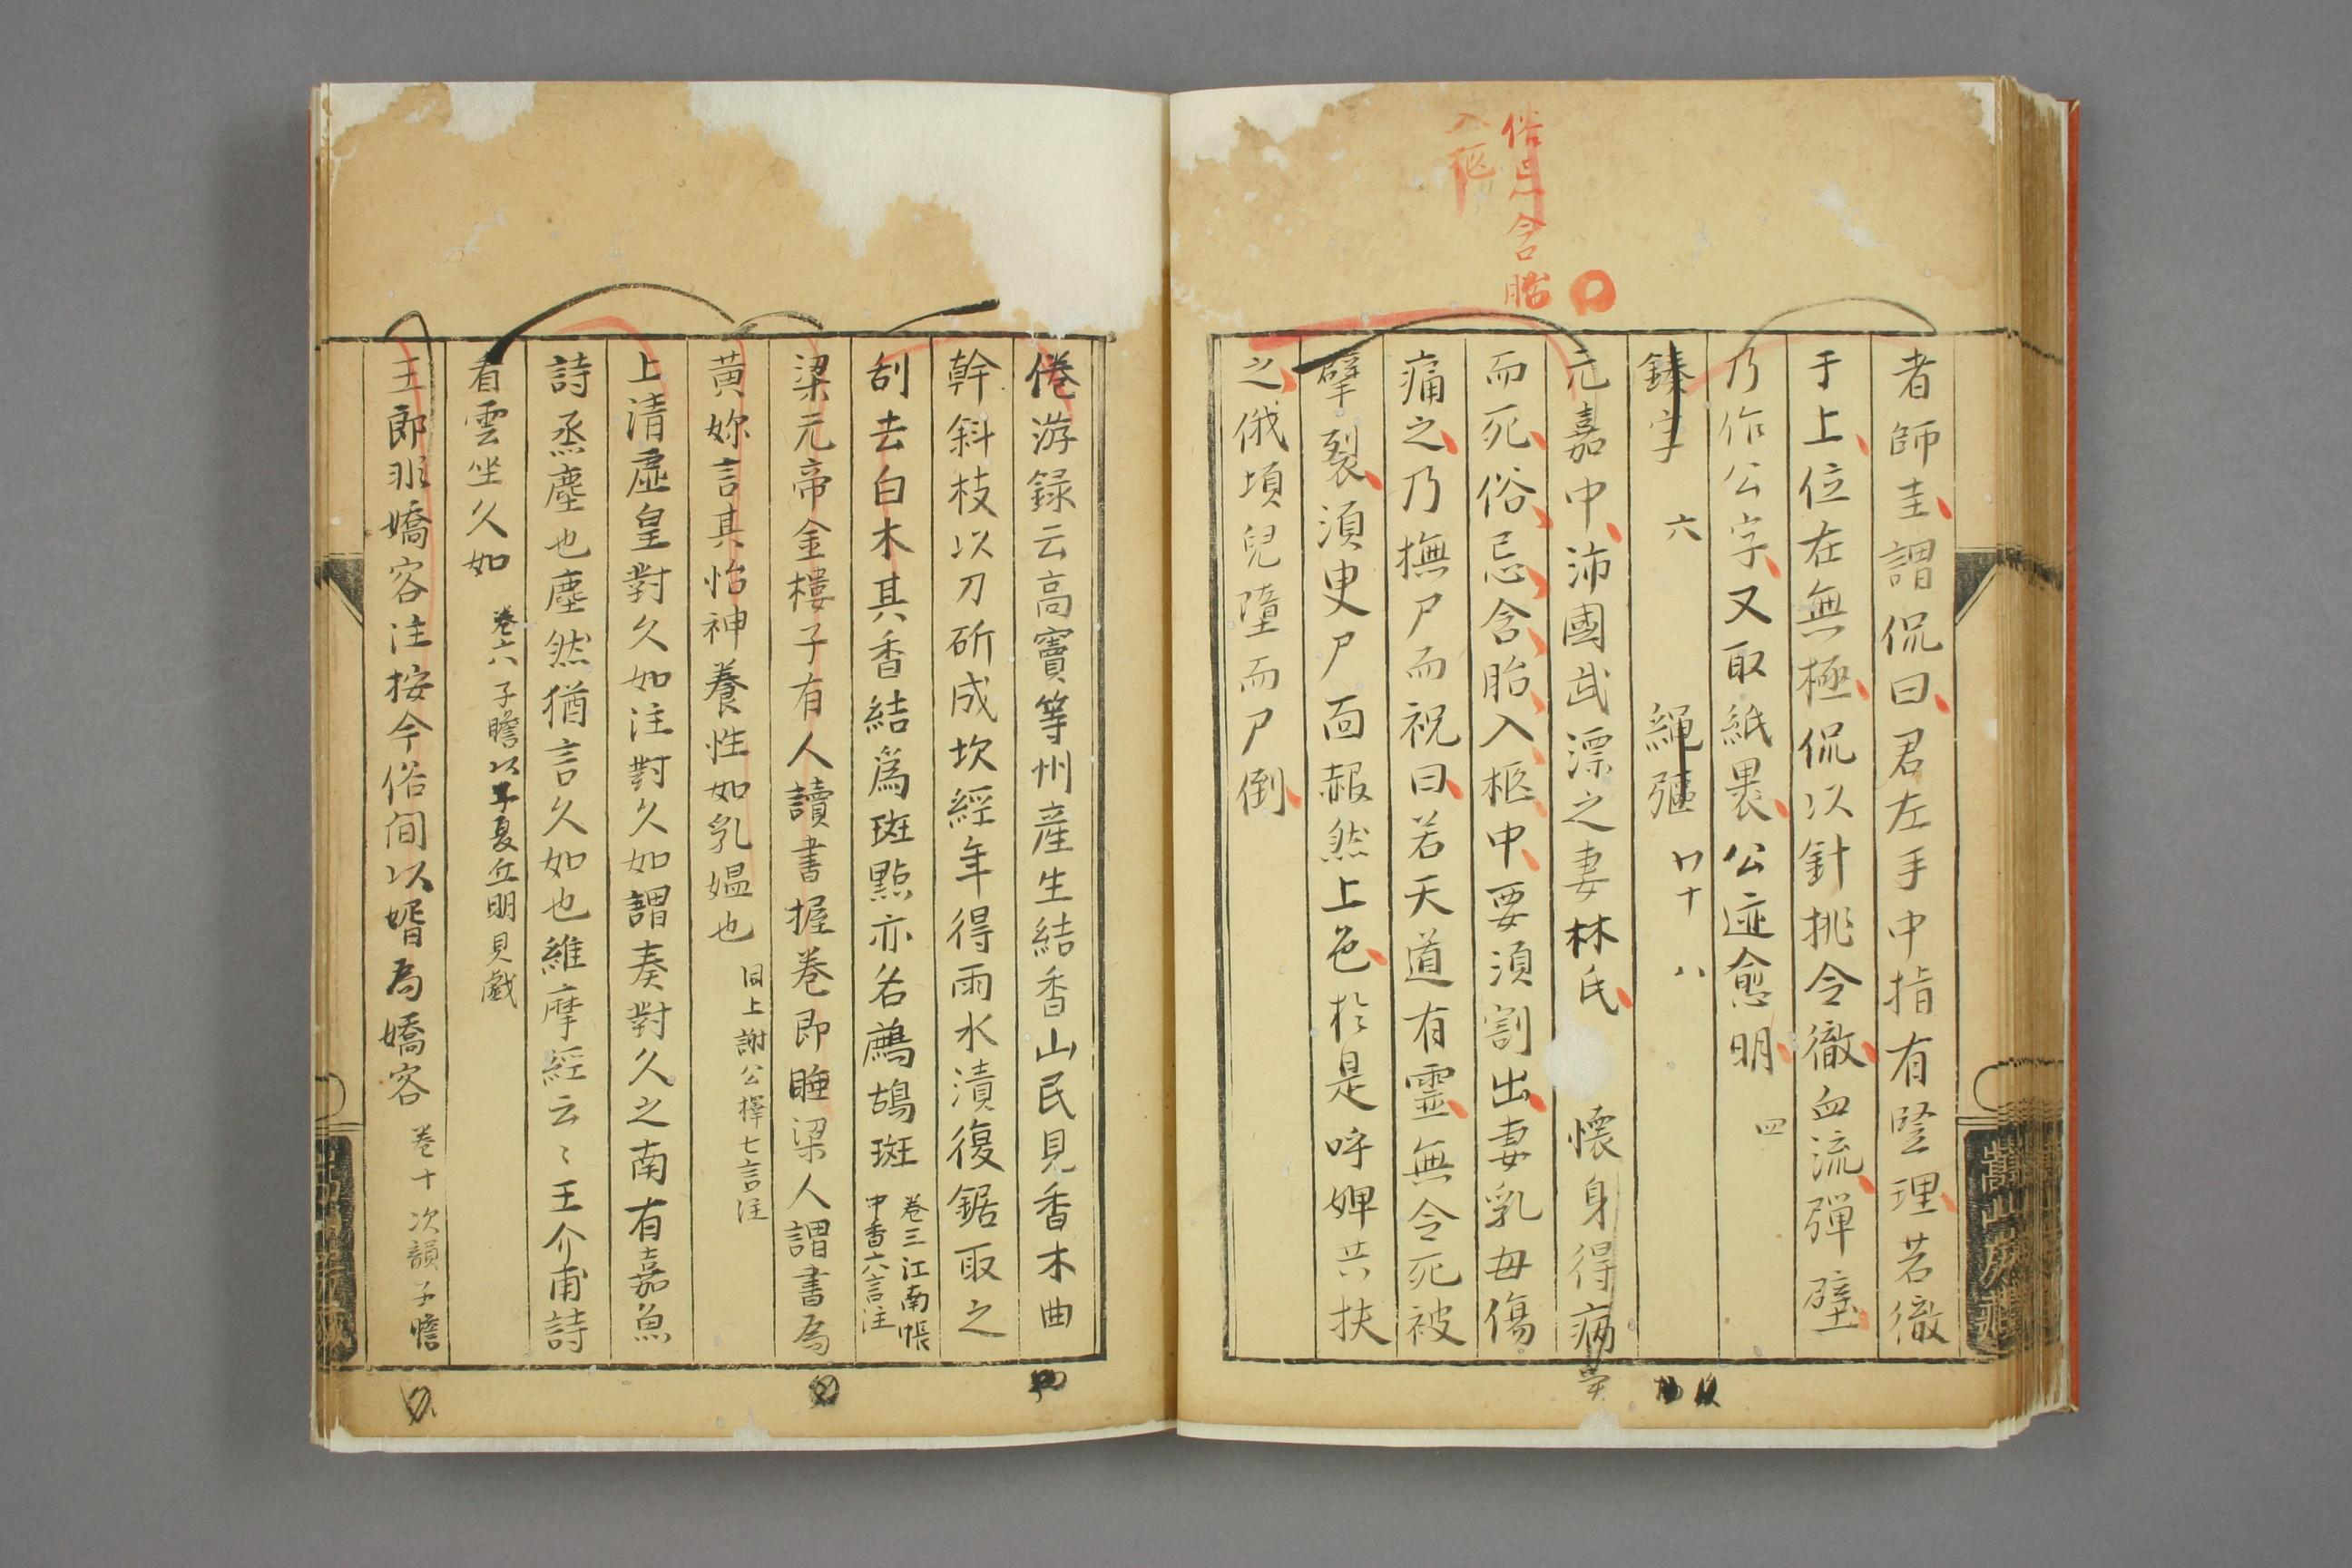 俗忌含胎
入柩
者師圭謂侃曰君左手中指有竪理若徹
于上位在無極侃以針挑令徹血流彈壁
乃作公字又取紙裹公迹愈明 四
鍊字 六 繩彊 廿十八
元嘉中沛國武漂之妻林氏 懷身得病
而死俗忌含胎入柩中要須割出妻乳母傷
痛之乃撫尸而祝曰若天道有靈無令死被
擘裂須臾尸面赧然上色於是呼婢共扶
之俄頃兒墮而尸倒
倦游録云高竇等州産生結香山民見香木曲
幹斜枝以刀斫成坎經年得雨水漬復鋸取之
刮去白木其香結爲斑點亦名鷓鴣斑 卷三江南帳
中香六言注
梁元帝金樓子有人讀書握卷即睡梁人謂書為
黄妳言其怡神養性如乳媪也 同上謝公擇七言注
上清虛皇對久如注對久如謂奏對久之南有嘉魚
詩烝塵也塵然猶言久如也維摩經云〻王介甫詩
看雲坐久如 卷六 子瞻以子夏丘明見戲
王郎非嬌客注按今俗間以婿為嬌客 卷十次韻子瞻